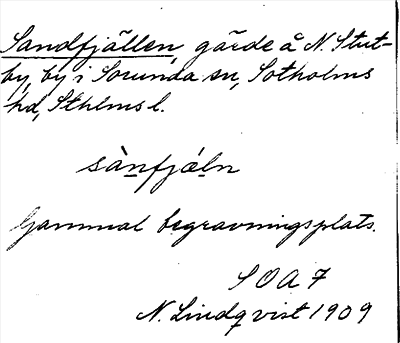 Sandfjällen, gärde å N. Stut-
by, by i Sorunda sn, Sotholms
hd, Sthlms l.
sànfjáln
Gammal begravningsplats.
SOA 7
N. Lindqvist 1909